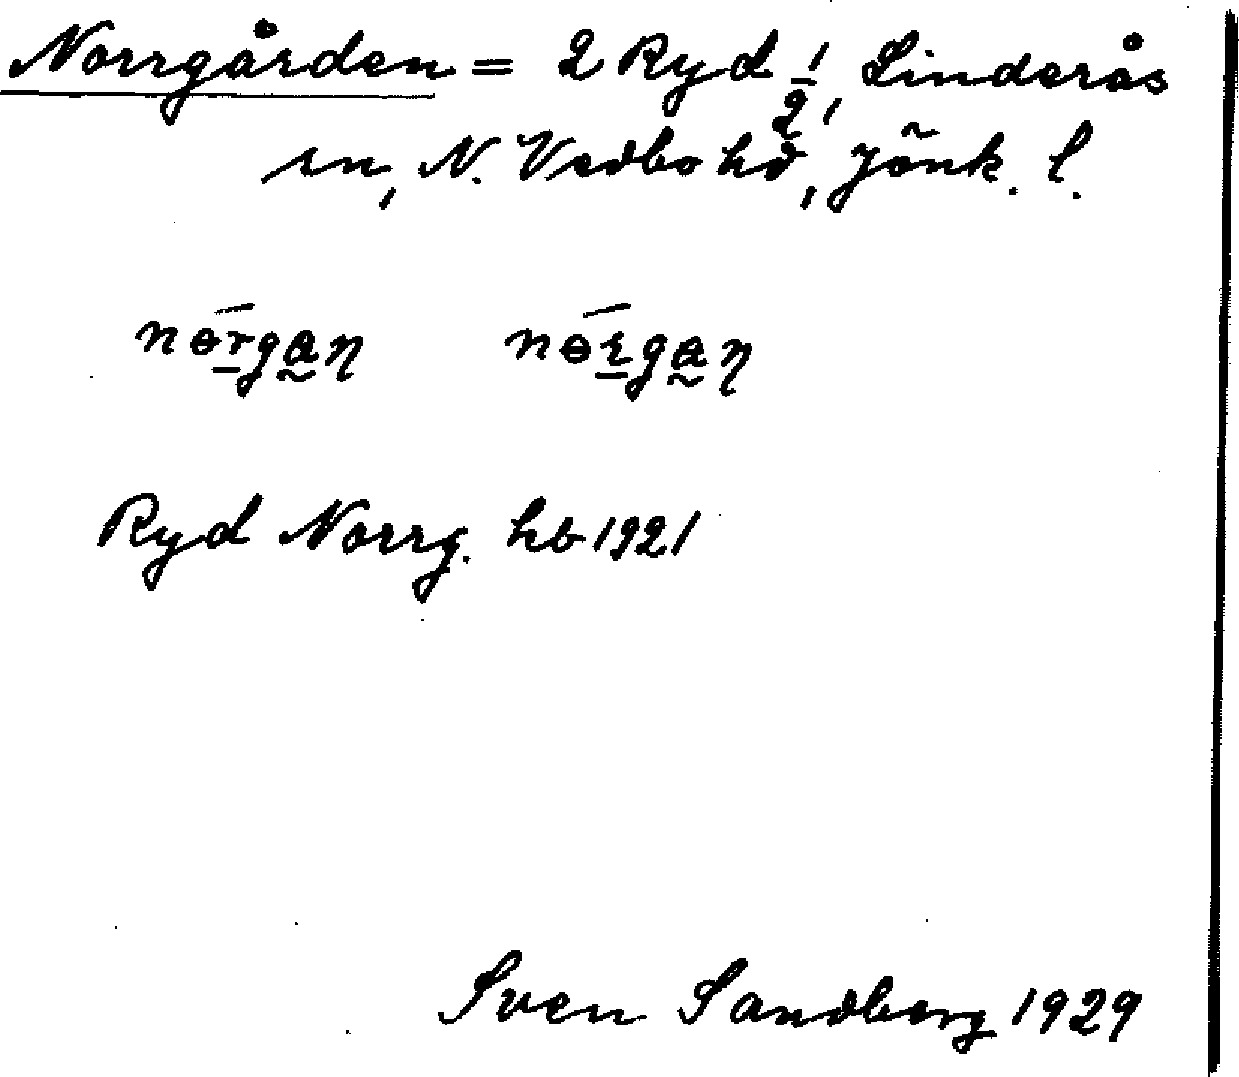 Norrgården = 2 Ryd 1/2, Linderås
sn, N. Vedbo hd, Jönk. l.
nɵ́r̠ga̰ŋ nɵ́ɽ̠ga̰ŋ
Ryd Norrg. hb 1921
Sven Sandberg 1929